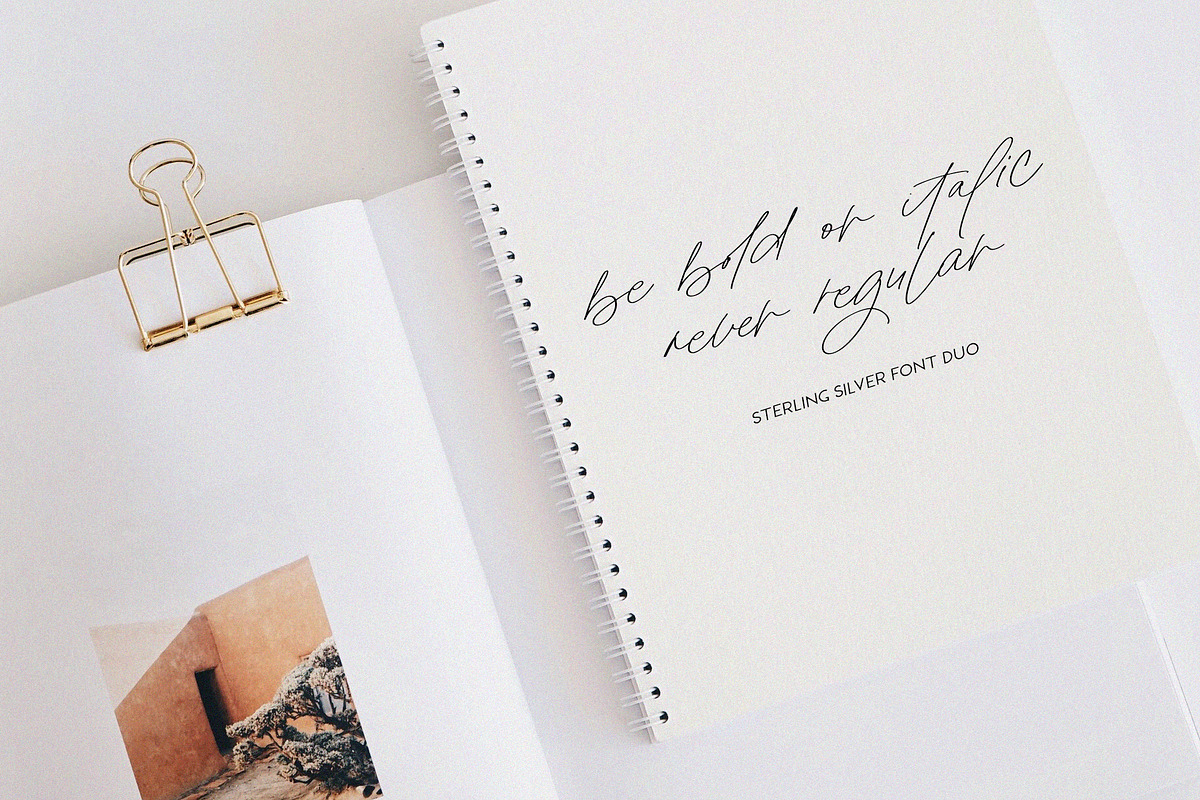 be bold or italic
never regular
STERLING SILVER FONT DUO